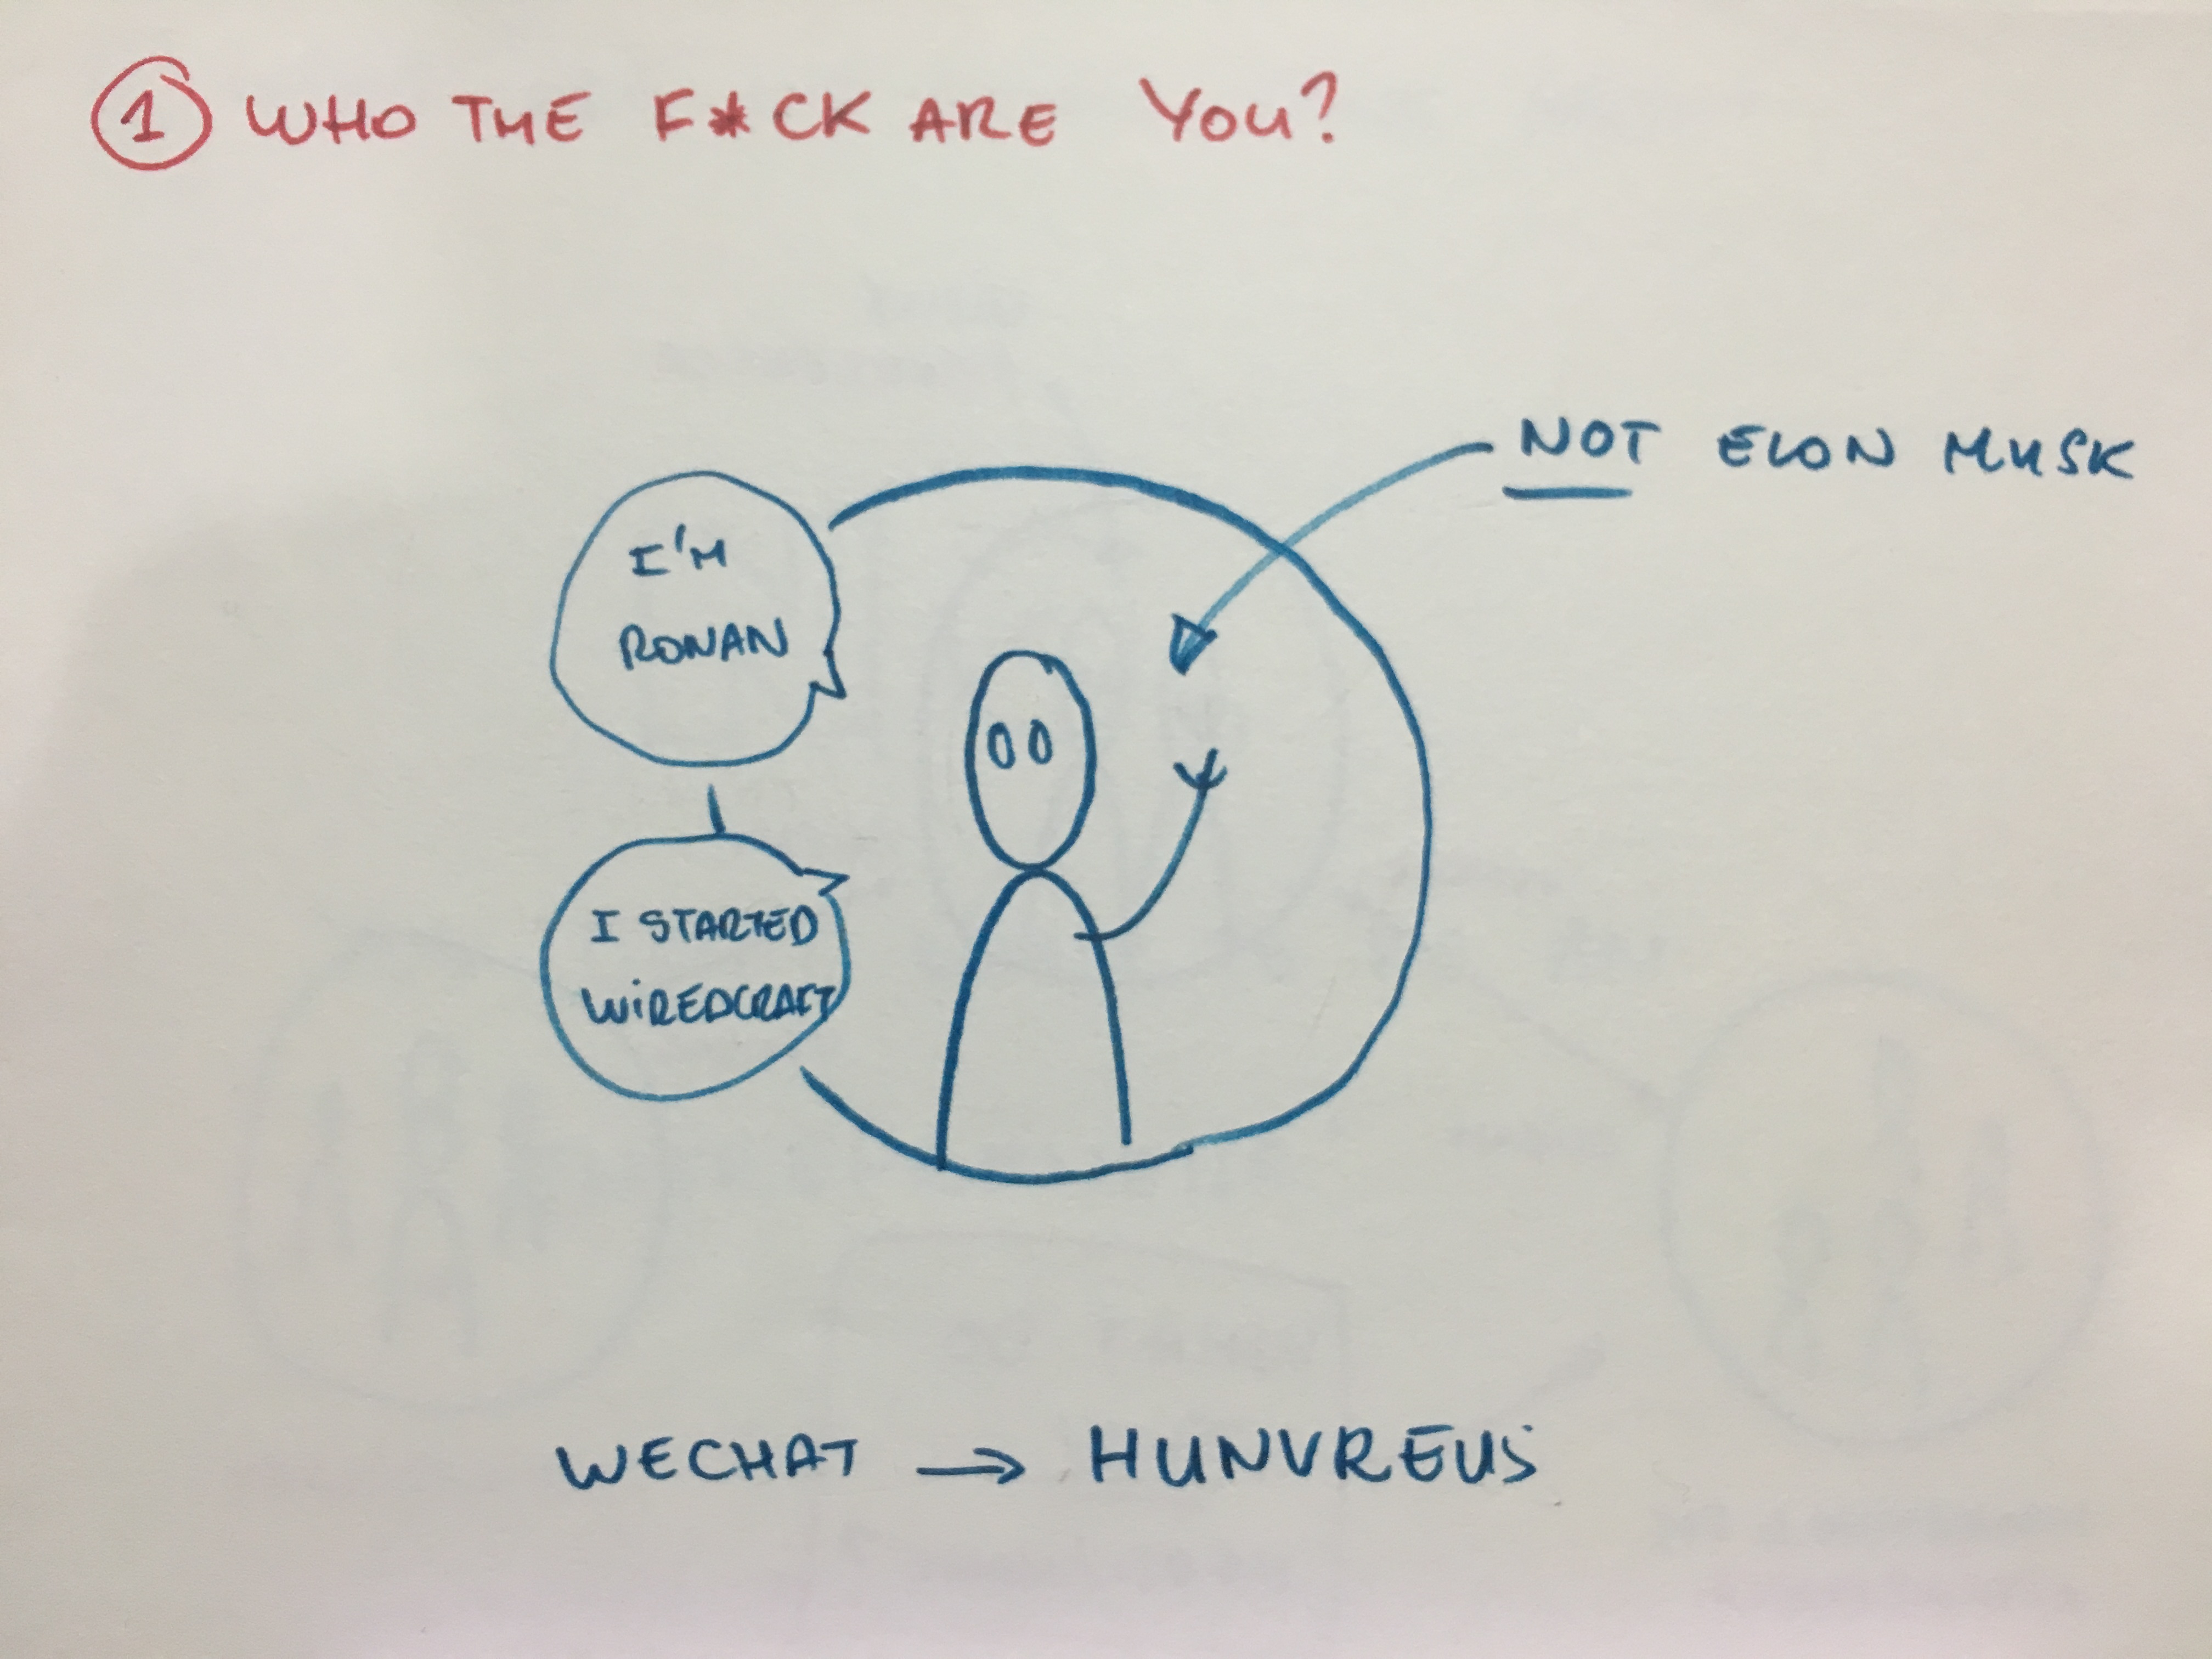 1 WHO THE F*CK ARE YOU?
NOT ELON MUSK
I'M
RONAN
I STARTED
WiREDCRAFT
WECHAT → HUNVREUS